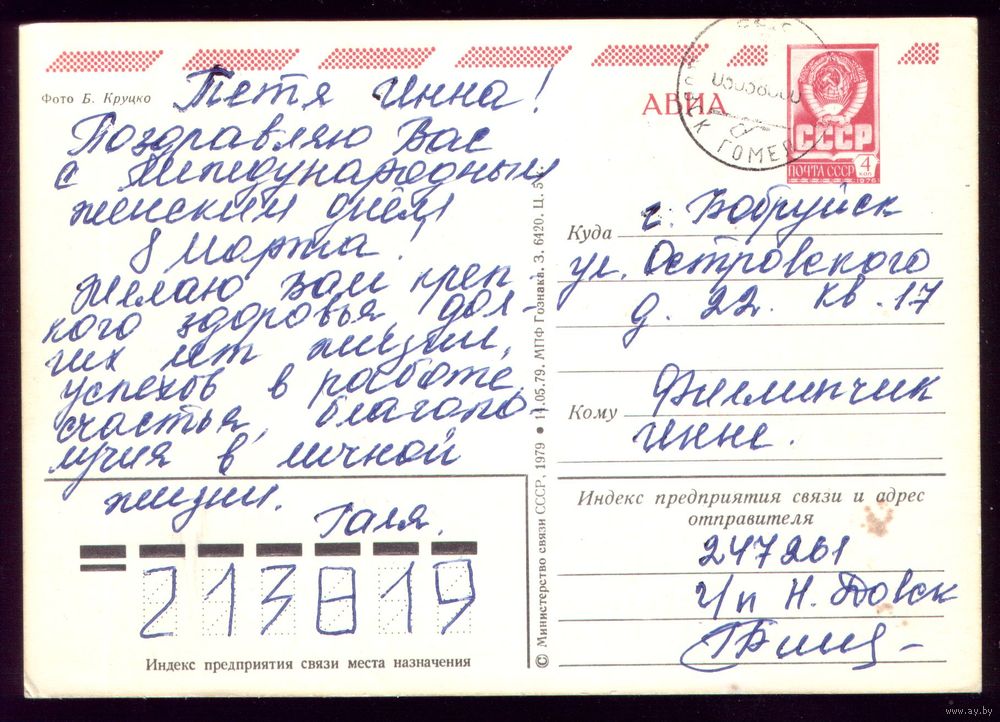 Фото Б. Круцко
Тетя Инна!
Поздравляю Вас
с Международным
женским днём
8 Марта!
Желаю Вам креп-
кого здоровья дол-
гих лет жизни,
успехов в работе,
счастья, благопо-
лучия в личной
жизни.
Галя.
213819
Индекс предприятия связи места назначения
© Министерство связи СССР, 1979 ● 14.05.79. МПФ Гознака. З. 6420. Ц. 5 к.
АВИА
ГОМЕЛ
СССР
ПОЧТА СССР
4
КОП
1978
Куда г. Бобруйск
ул. Островского
д. 22. кв. 17
Кому Филипчик
Инне.
Индекс предприятия связи и адрес
отправителя
247261
Ч/п Н. Довск
www.ay.by